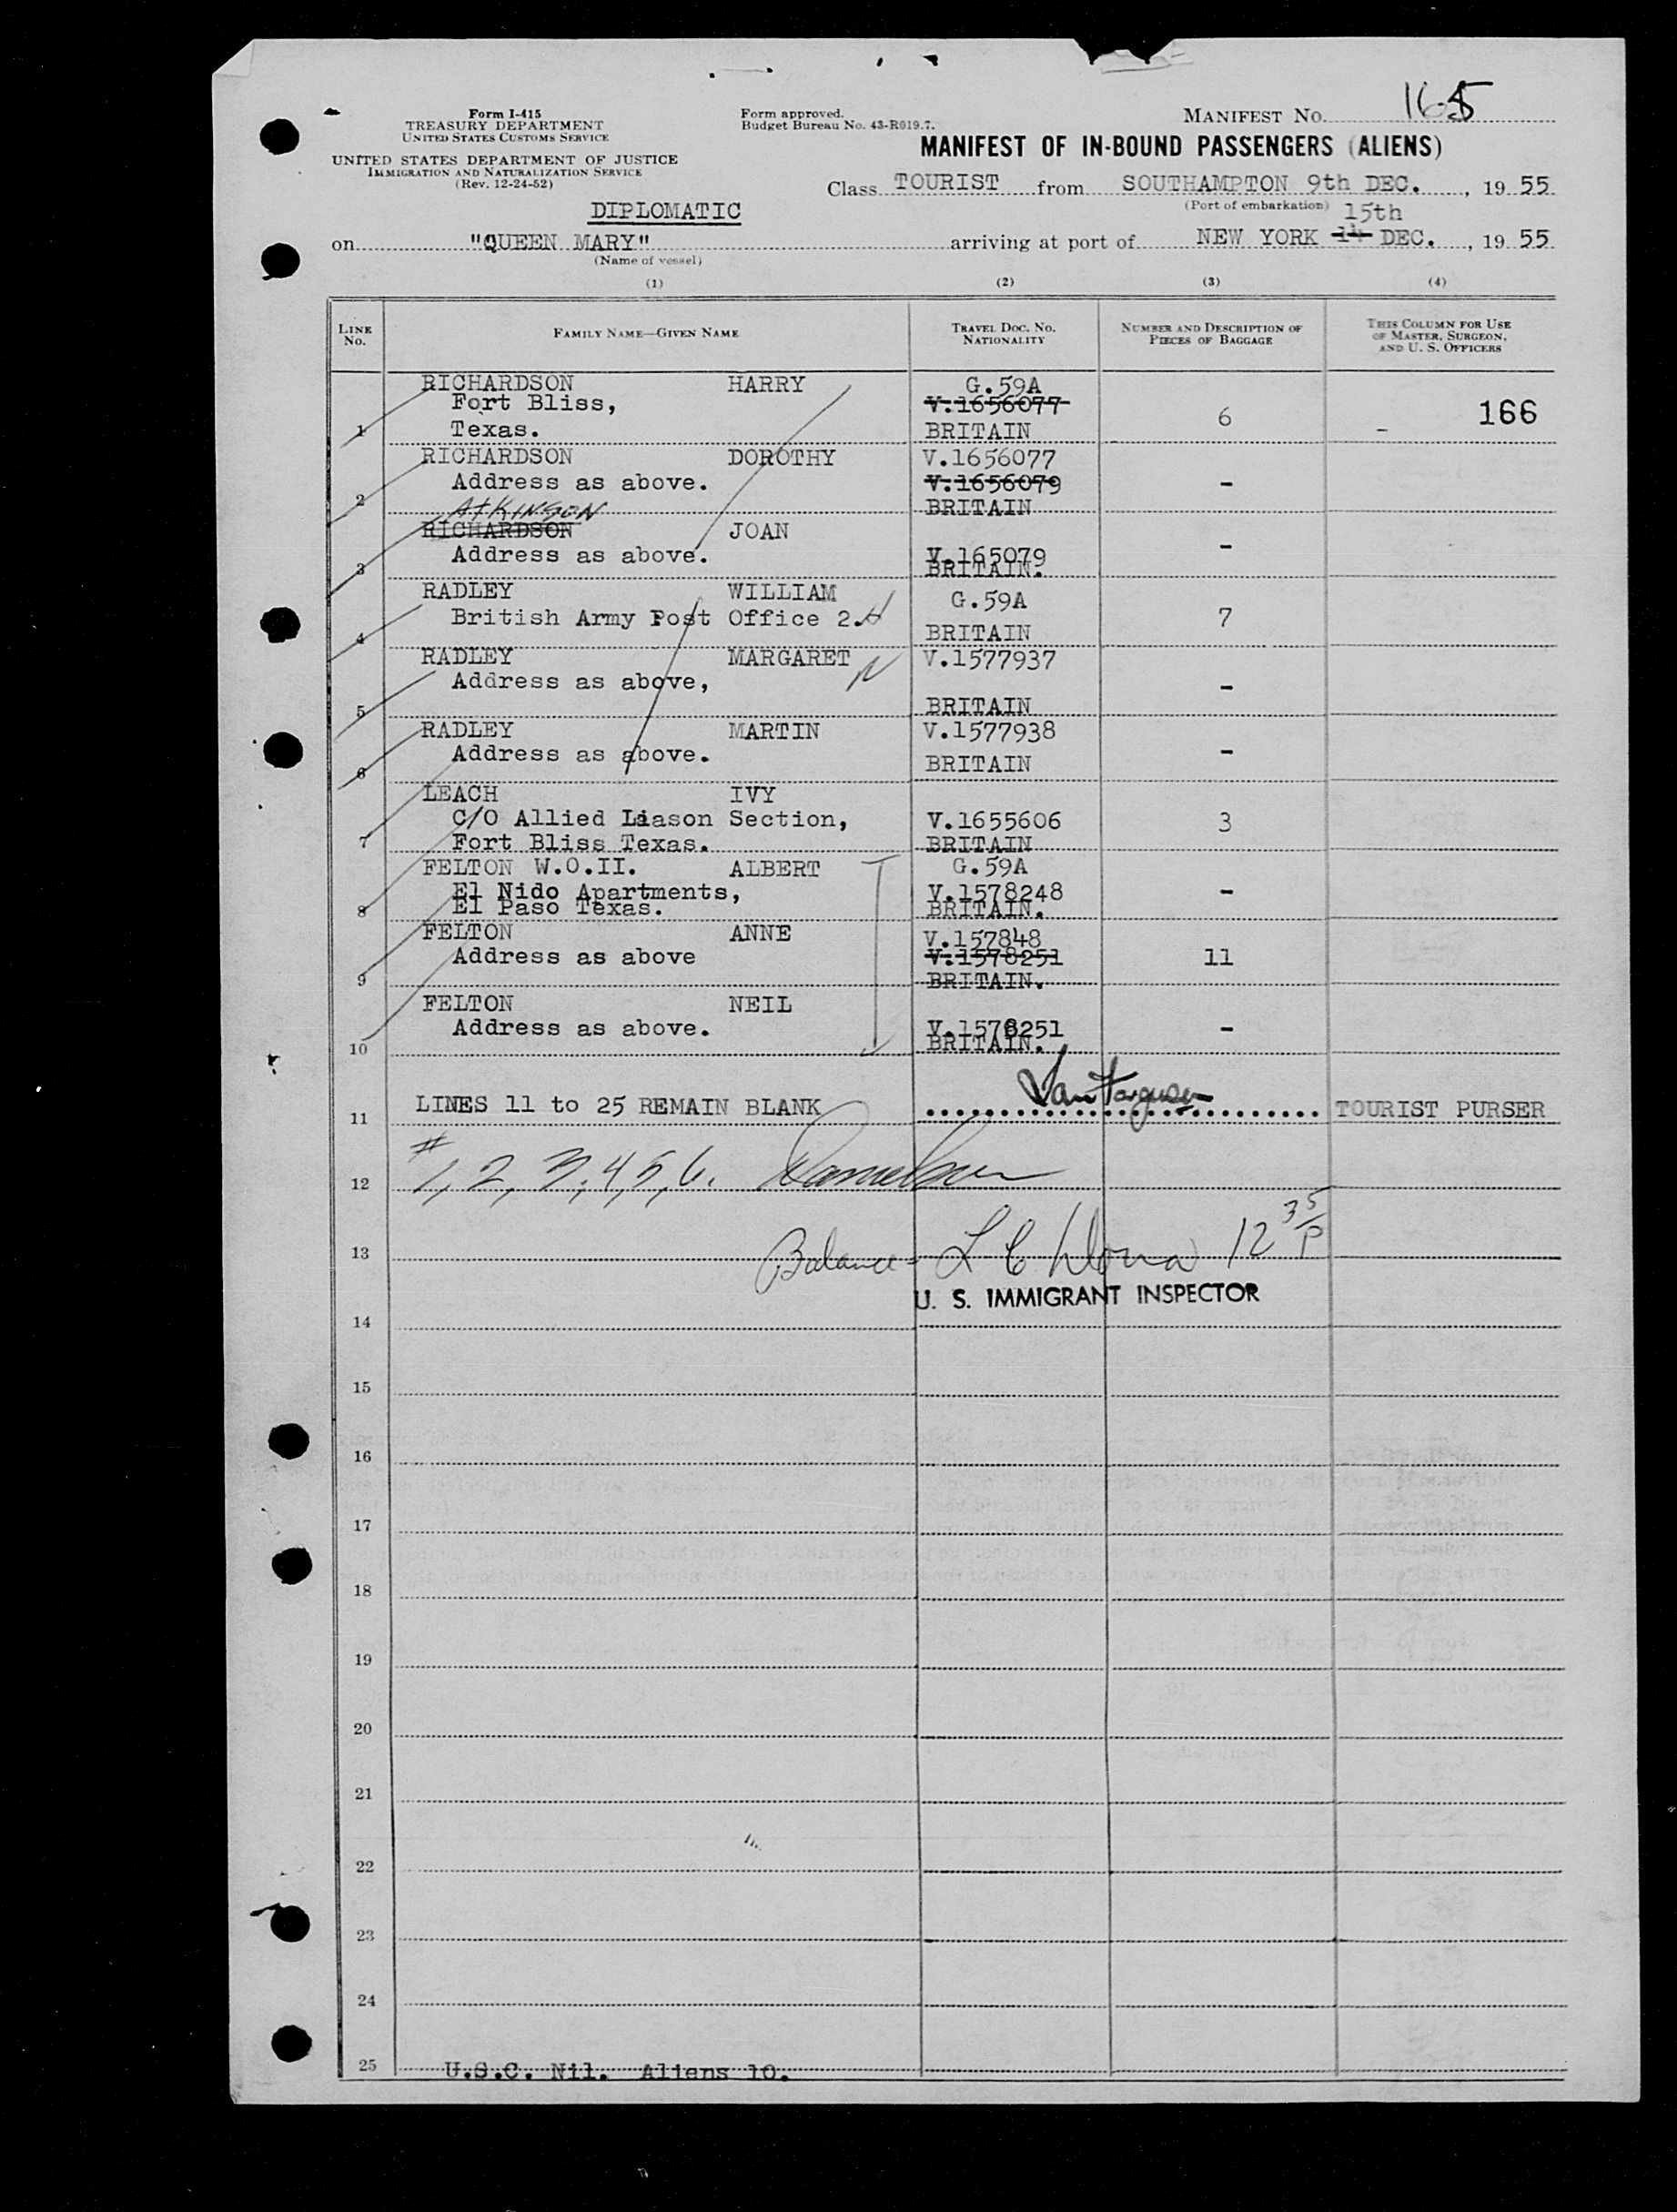 Form I-415
TREASURY DEPARTMENT
UNITED STATES CUSTOMS SERVICE
UNITED STATES DEPARTMENT OF JUSTICE
IMMIGRATION AND NATURALIZATION SERVICE
(Rev. 12-24-52)
Form approved.
Budget Bureau No. 43-R019.7.
MANIFEST No. 165
MANIFEST OF IN-BOUND PASSENGERS (ALIENS)
Class TOURIST from SOUTHAMPTON 9th DEC., 19 55
(Port of embarkation)
DIPLOMATIC
15th
on "QUEEN MARY" arriving at port of NEW YORK 14 DEC., 19 55
(Name of vessel)
(1) (2) (3) (4)
LINE No. FAMILY NAME—GIVEN NAME TRAVEL DOC. NO. NATIONALITY NUMBER AND DESCRIPTION OF PIECES OF BAGGAGE THIS COLUMN FOR USE OF MASTER, SURGEON, AND U. S. OFFICERS
RICHARDSON HARRY G.59A
Fort Bliss, V.1656077
1 Texas. BRITAIN 6 – 166
RICHARDSON DOROTHY V.1656077
Address as above. V.1656079 -
2 BRITAIN
ATKINSON
RICHARDSON JOAN
Address as above. V.165079 -
3 BRITAIN.
RADLEY WILLIAM G.59A
British Army Post Office 2. 7
4 BRITAIN
RADLEY MARGARET N V.1577937
Address as above, -
5 BRITAIN
RADLEY MARTIN V.1577938
Address as above. -
6 BRITAIN
LEACH IVY
C/O Allied Liason Section, V.1655606 3
7 Fort Bliss Texas. BRITAIN
FELTON W.O.II. ALBERT G.59A
El Nido Apartments, V.1578248 -
8 El Paso Texas. BRITAIN.
FELTON ANNE V.157848
Address as above V.1578251 11
9 BRITAIN.
FELTON NEIL
Address as above. V.1578251 -
10 BRITAIN.
11 LINES 11 to 25 REMAIN BLANK Ian Ferguson TOURIST PURSER
12 # 1, 2, 3, 4, 5, 6.
13 Balance - 12 35 P
U. S. IMMIGRANT INSPECTOR
14
15
16
17
18
19
20
21
22
23
24
25 U.S.C. Nil. Aliens 10.